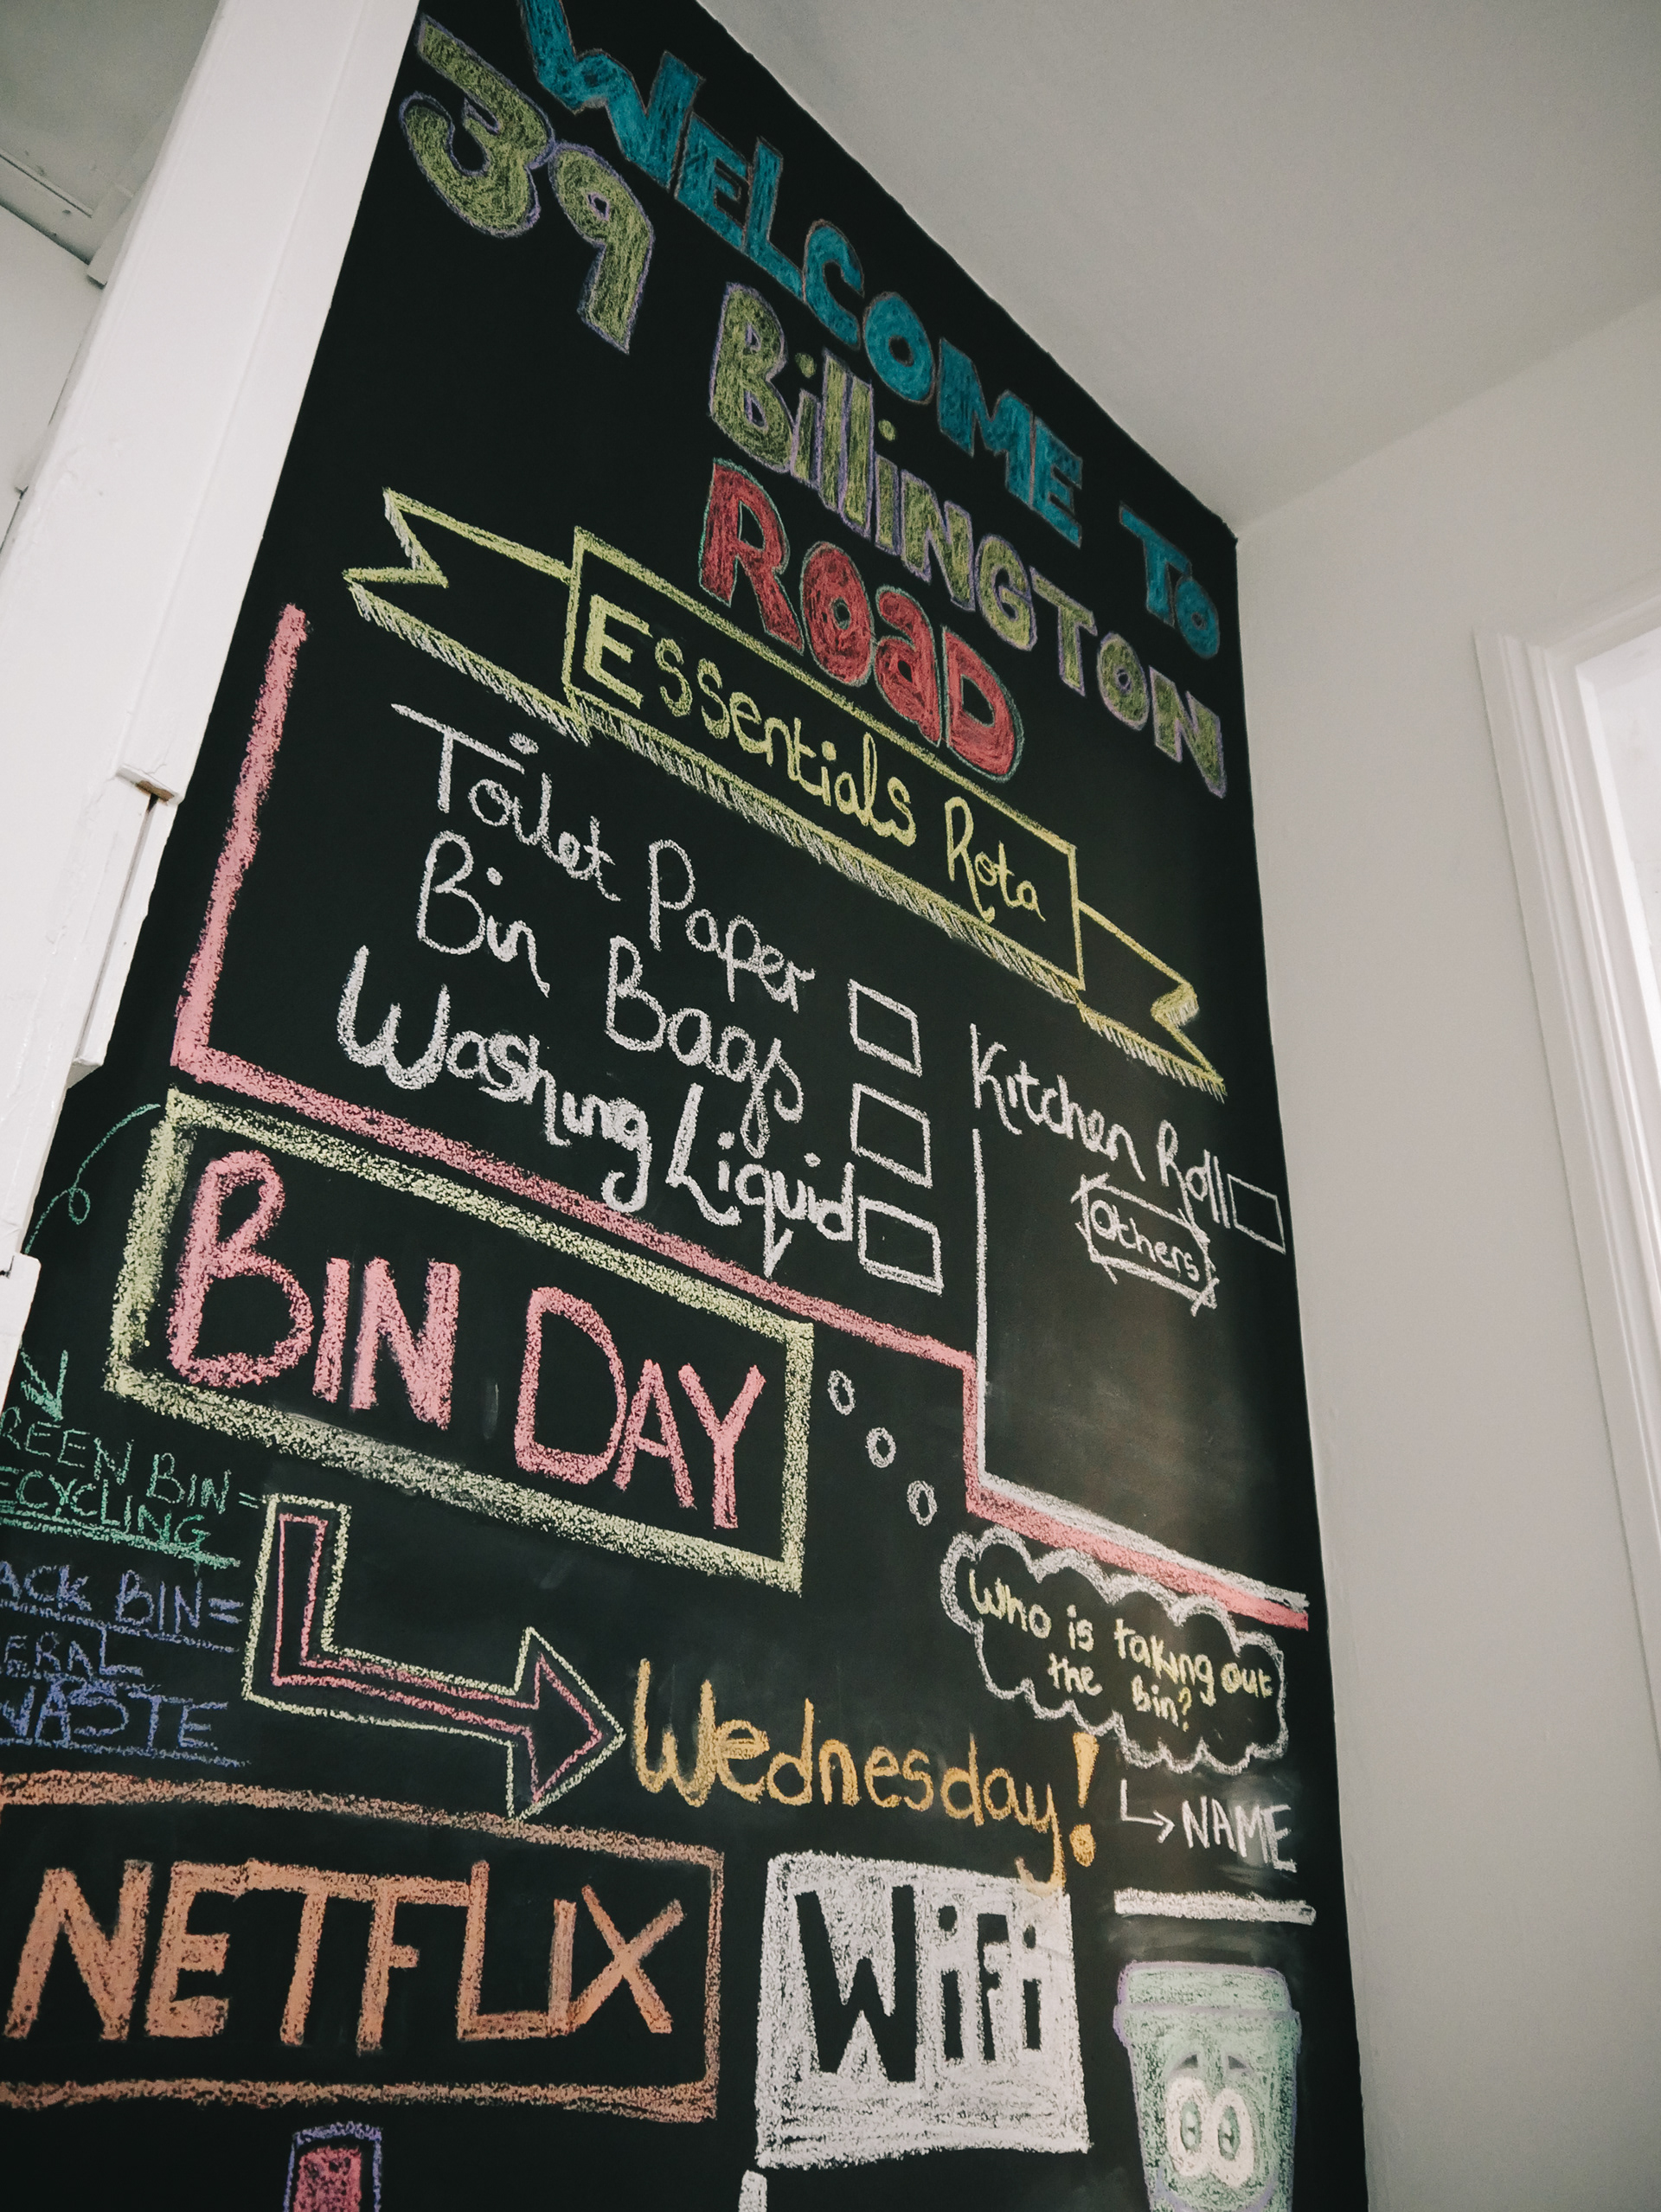 WELCOME TO
39 BilliNGTON
ROaD
Essentials Rota
Toilet Paper
Bin Bags
Washing Liquid
Kitchen Roll
Others
BIN DAY
REEN BIN =
ECYCLING
ACK BIN =
ERAL
WASTE
Who is taking out
the bin?
Wednesday!
NAME
NETFLIX
WiFi